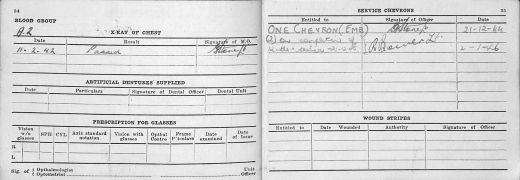 34
BLOOD GROUP
A.2
X-RAY OF CHEST
Date Result Signature of M.O.
11-2-42 Passed
ARTIFICIAL DENTURES SUPPLIED
Date Particulars Signature of Dental Officer Dental Unit
PRESCRIPTION FOR GLASSES
Vision w/o glasses SPH CYL Axis standard notation Vision with glasses Opthal Centre Frame P'ticulars Date examined Date of Issue
R
L
Sig. of { Opthalmologist Unit
{ Optometrist Officer
SERVICE CHEVRONS 35
Entitled to Signature of Officer Date
ONE CHEVRON (EMB) 21-12-44
completion of
2-1-46
WOUND STRIPES
Entitled to Date Wounded Authority Signature of Officer